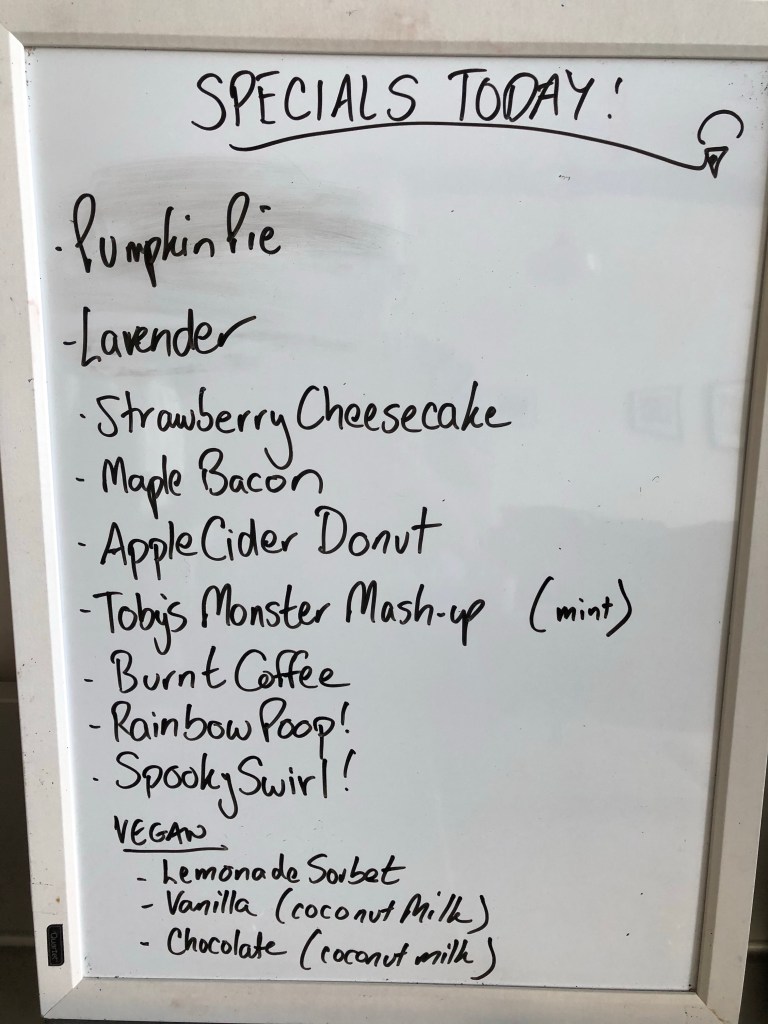 SPECIALS TODAY!
· Pumpkin Pie
- Lavender
· Strawberry Cheesecake
- Maple Bacon
· Apple Cider Donut
- Toby's Monster Mash-up (mint)
- Burnt Coffee
- Rainbow Poop!
· Spooky Swirl!
VEGAN
- Lemonade Sorbet
- Vanilla (coconut Milk)
- Chocolate (coconut milk)